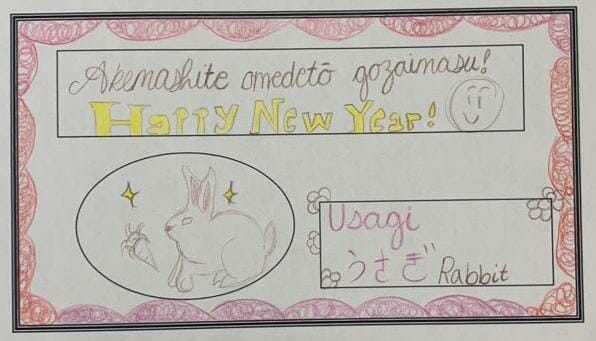 Akemashite omedetō gozaimasu!
Happy New Year!
Usagi
うさぎ Rabbit